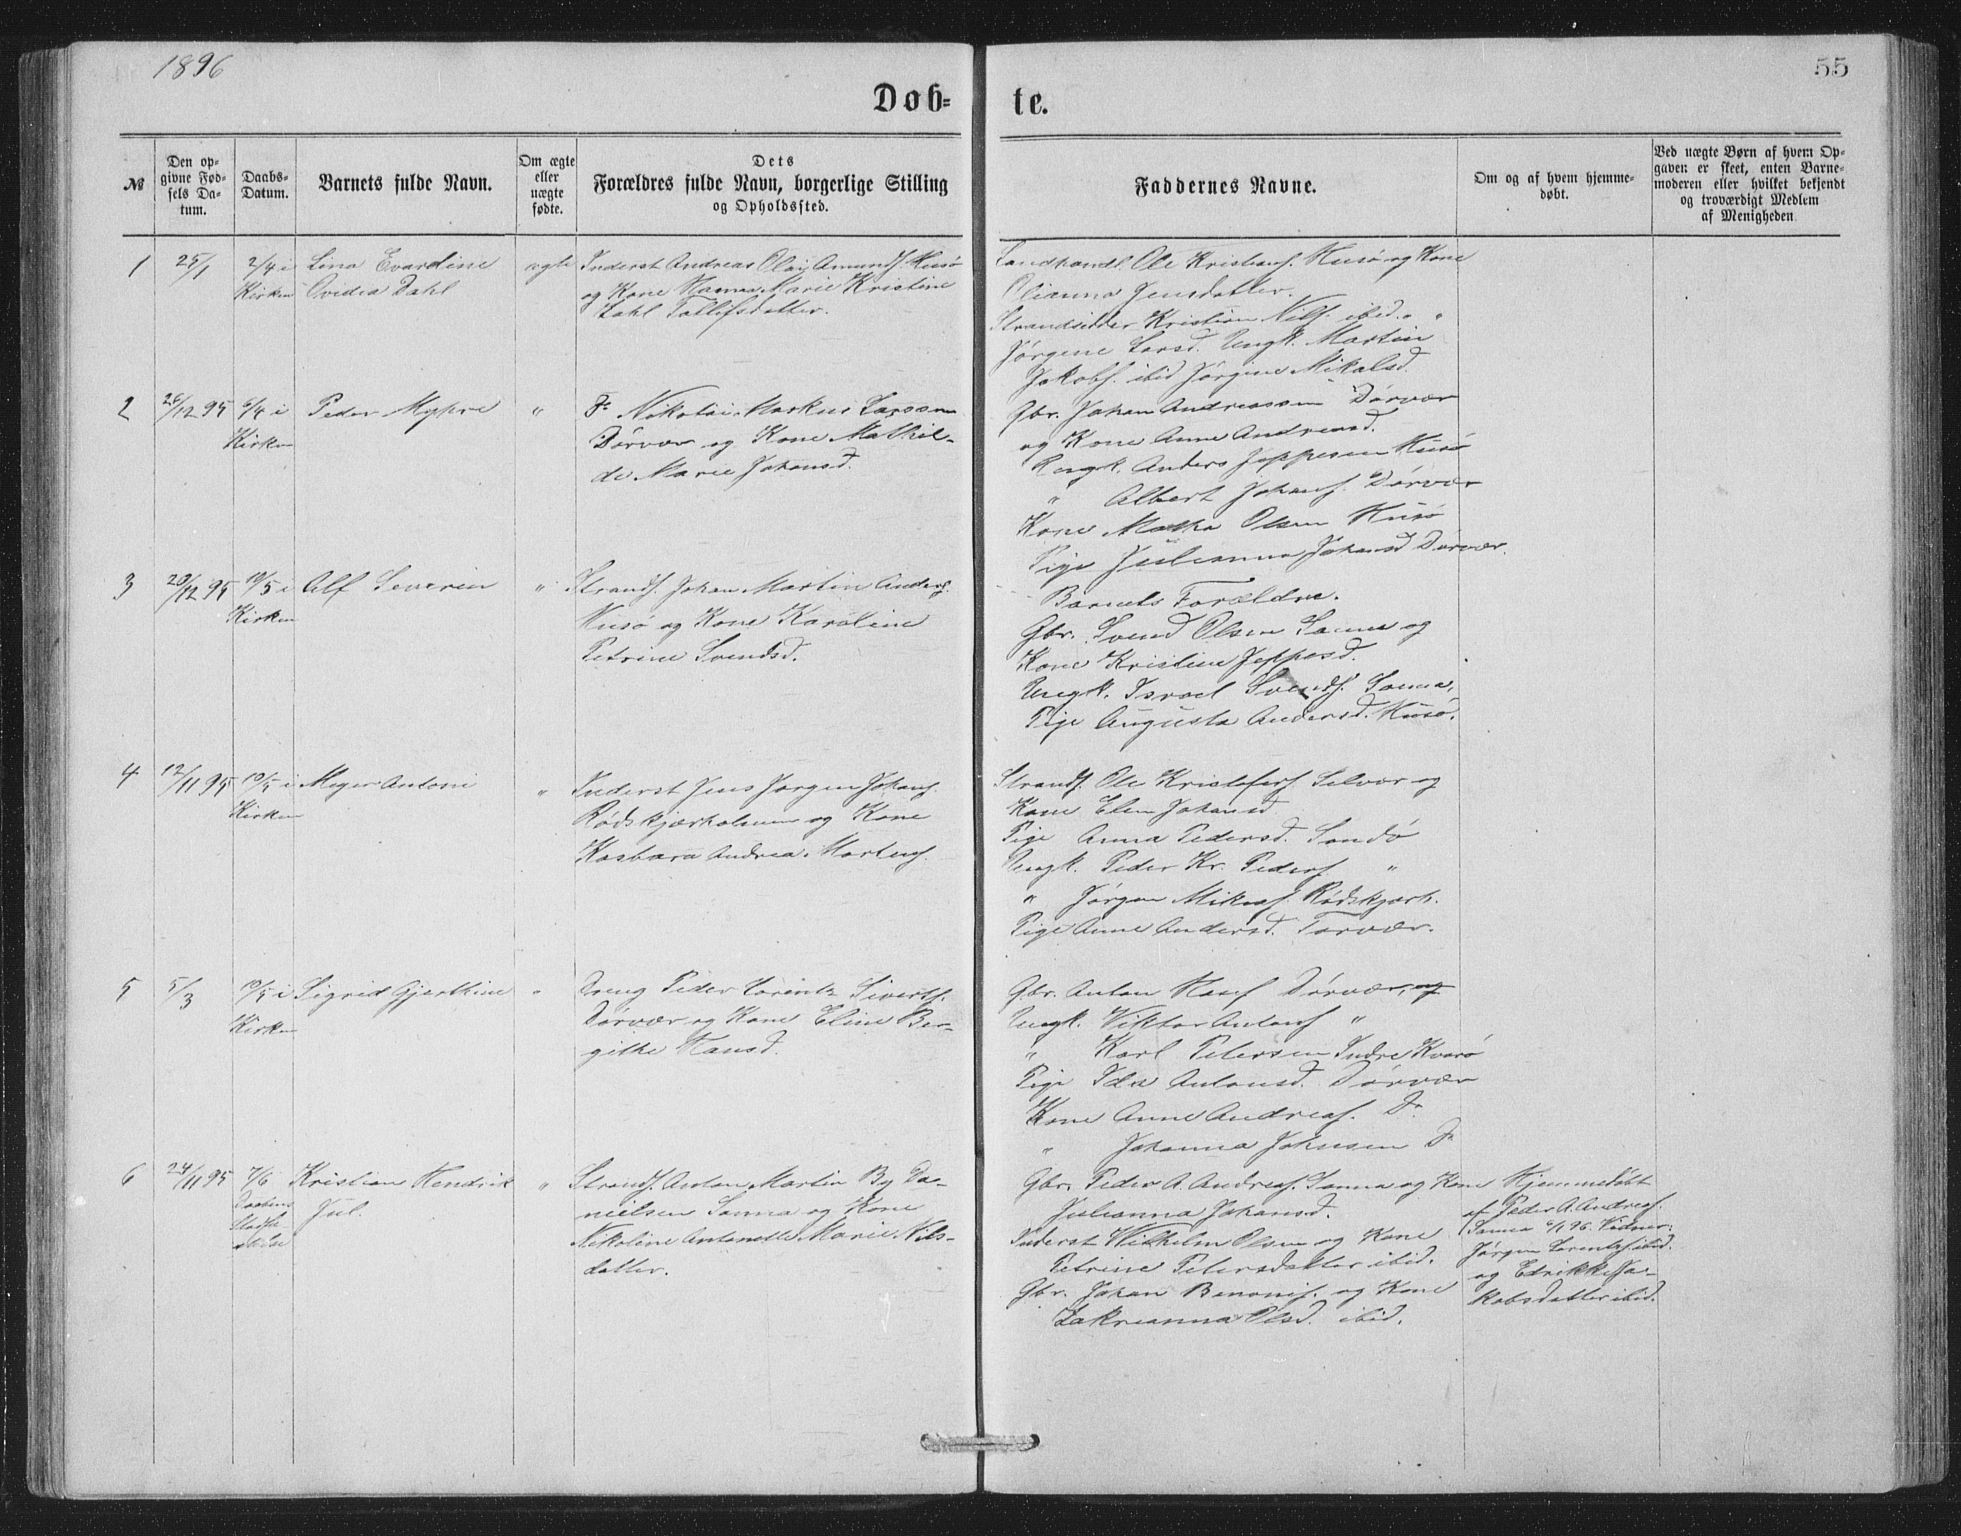 1896
55
Døb-
te.
№
Den op-
givne Fød-
sels Da-
tum.
Daabs-
Datum.
Barnets fulde Navn.
Om ægte
eller
uægte
fødte.
Dets
Forældres fulde Navn, borgerlige Stilling
og Opholdssted.
Faddernes Navne.
Om og af hvem hjemme-
døbt.
Ved uægte Børn af hvem Op-
gaven er skeet, enten Barne-
moderen eller hvilket bekjendt
og troværdigt Medlem
af Menigheden.
1
25/1
2/4 i
Kirken
Lina Evardine
Ovidia Dahl
ægte
Inderst Andreas Olai Amunds. Husø
og Kone Hanna Marie Kristine
Dahl Tollefsdatter.
Landhandl. Ole Kristians. Husø og Kone
Olianna Jensdatter.
Strandsidder Kristian Nils. ibid. " "
Jørgine Larsd. Ungk. Martin
Jakobs. ibid Jørgine Mikalsd.
2
26/12 95
6/4 i
Kirken
Peder Myhre
"
F. Nikolai Markus Larssen
Dørvær og Kone Mathil-
de Marie Johansd.
Gbr. Johan Andreassen Dørvær
og Kone Anne Andreasd.
Ungk. Anders Jeppesen Husø
" Albert Johans. Dørvær
Kone Martha Olsen Husø
Pige Julianna Johansd Dørvær.
3
20/12 95
10/5 i
Kirken
Alf Severin
"
Strands. Johan Martin Anders.
Husø og Kone Karoline
Petrine Svendsd.
Barnets Forældre.
Gbr. Svend Olsen Sanna og
Kone Kristine Jeppesd.
Ungk. Israel Svends. Sanna,
Pige Augusta Andersd. Husø.
4
12/11 95
10/5 i
Kirken
Meyer Antoni
"
Inderst Jens Jørgen Johans.
Rødskjærholmen og Kone
Kasbara Andrea Martens.
Strands. Ole Kristofers. Selvær og
Kone Elen Johansd
Pige Anna Pedersd. Sandø
Ungk. Peder Kr. Peders. "
" Jørgen Mikas. Rødskjærh.
Pige Anne Andersd. Torvær.
5
5/3
10/5 i
Kirken
Sigrid Gjertine
"
Dreng Peder Lorents Siverts.
Dørvær og Kone Eline Ber-
githe Hansd.
Gbr. Anton Hans. Dørvær, og
Ungk. Viktor Antons. "
" Karl Petersen Indre Kvarø
Pige Ida Antonsd. Dørvær
Kone Anne Andreas. Do
" Johanna Johnsen Do
6
24/11 95
7/6
Daabens
Stadfæ-
stelse
Kristian Hendrik
Jul.
"
Strands. Anton Martin By Da-
nielsen Sanna og Kone
Nikoline Antonette Marie Nils-
datter.
Gbr. Peder A. Andreas. Sanna og Kone
Julianna Johansd.
Inderst Wilhelm Olsen og Kone
Petrine Petersdatter ibid.
Gbr. Johan Benonis. og Kone
Zakrianna Olsd. ibid.
Hjemmedøbt
af Peder A. Andreas.
Sanna 6/1 96. Vidner:
Jørgen Lorents. ibid.
og Edrikke Ja-
kobsdatter ibid.